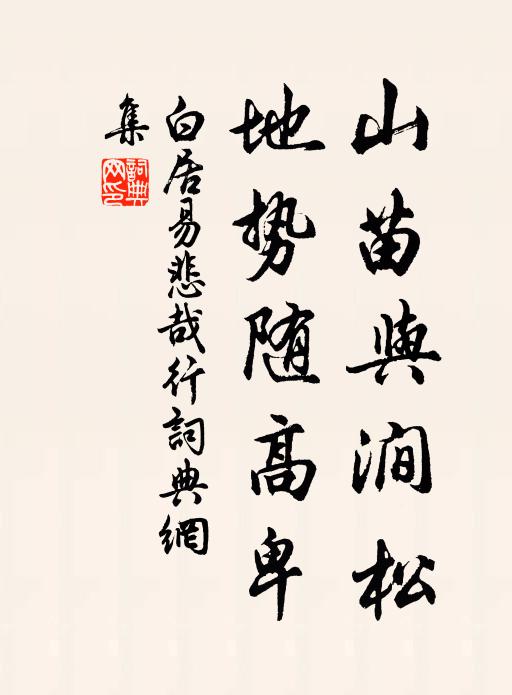 山苗與澗松
地势随高卑
白居易悲哉行詞典網
集
詞典网印